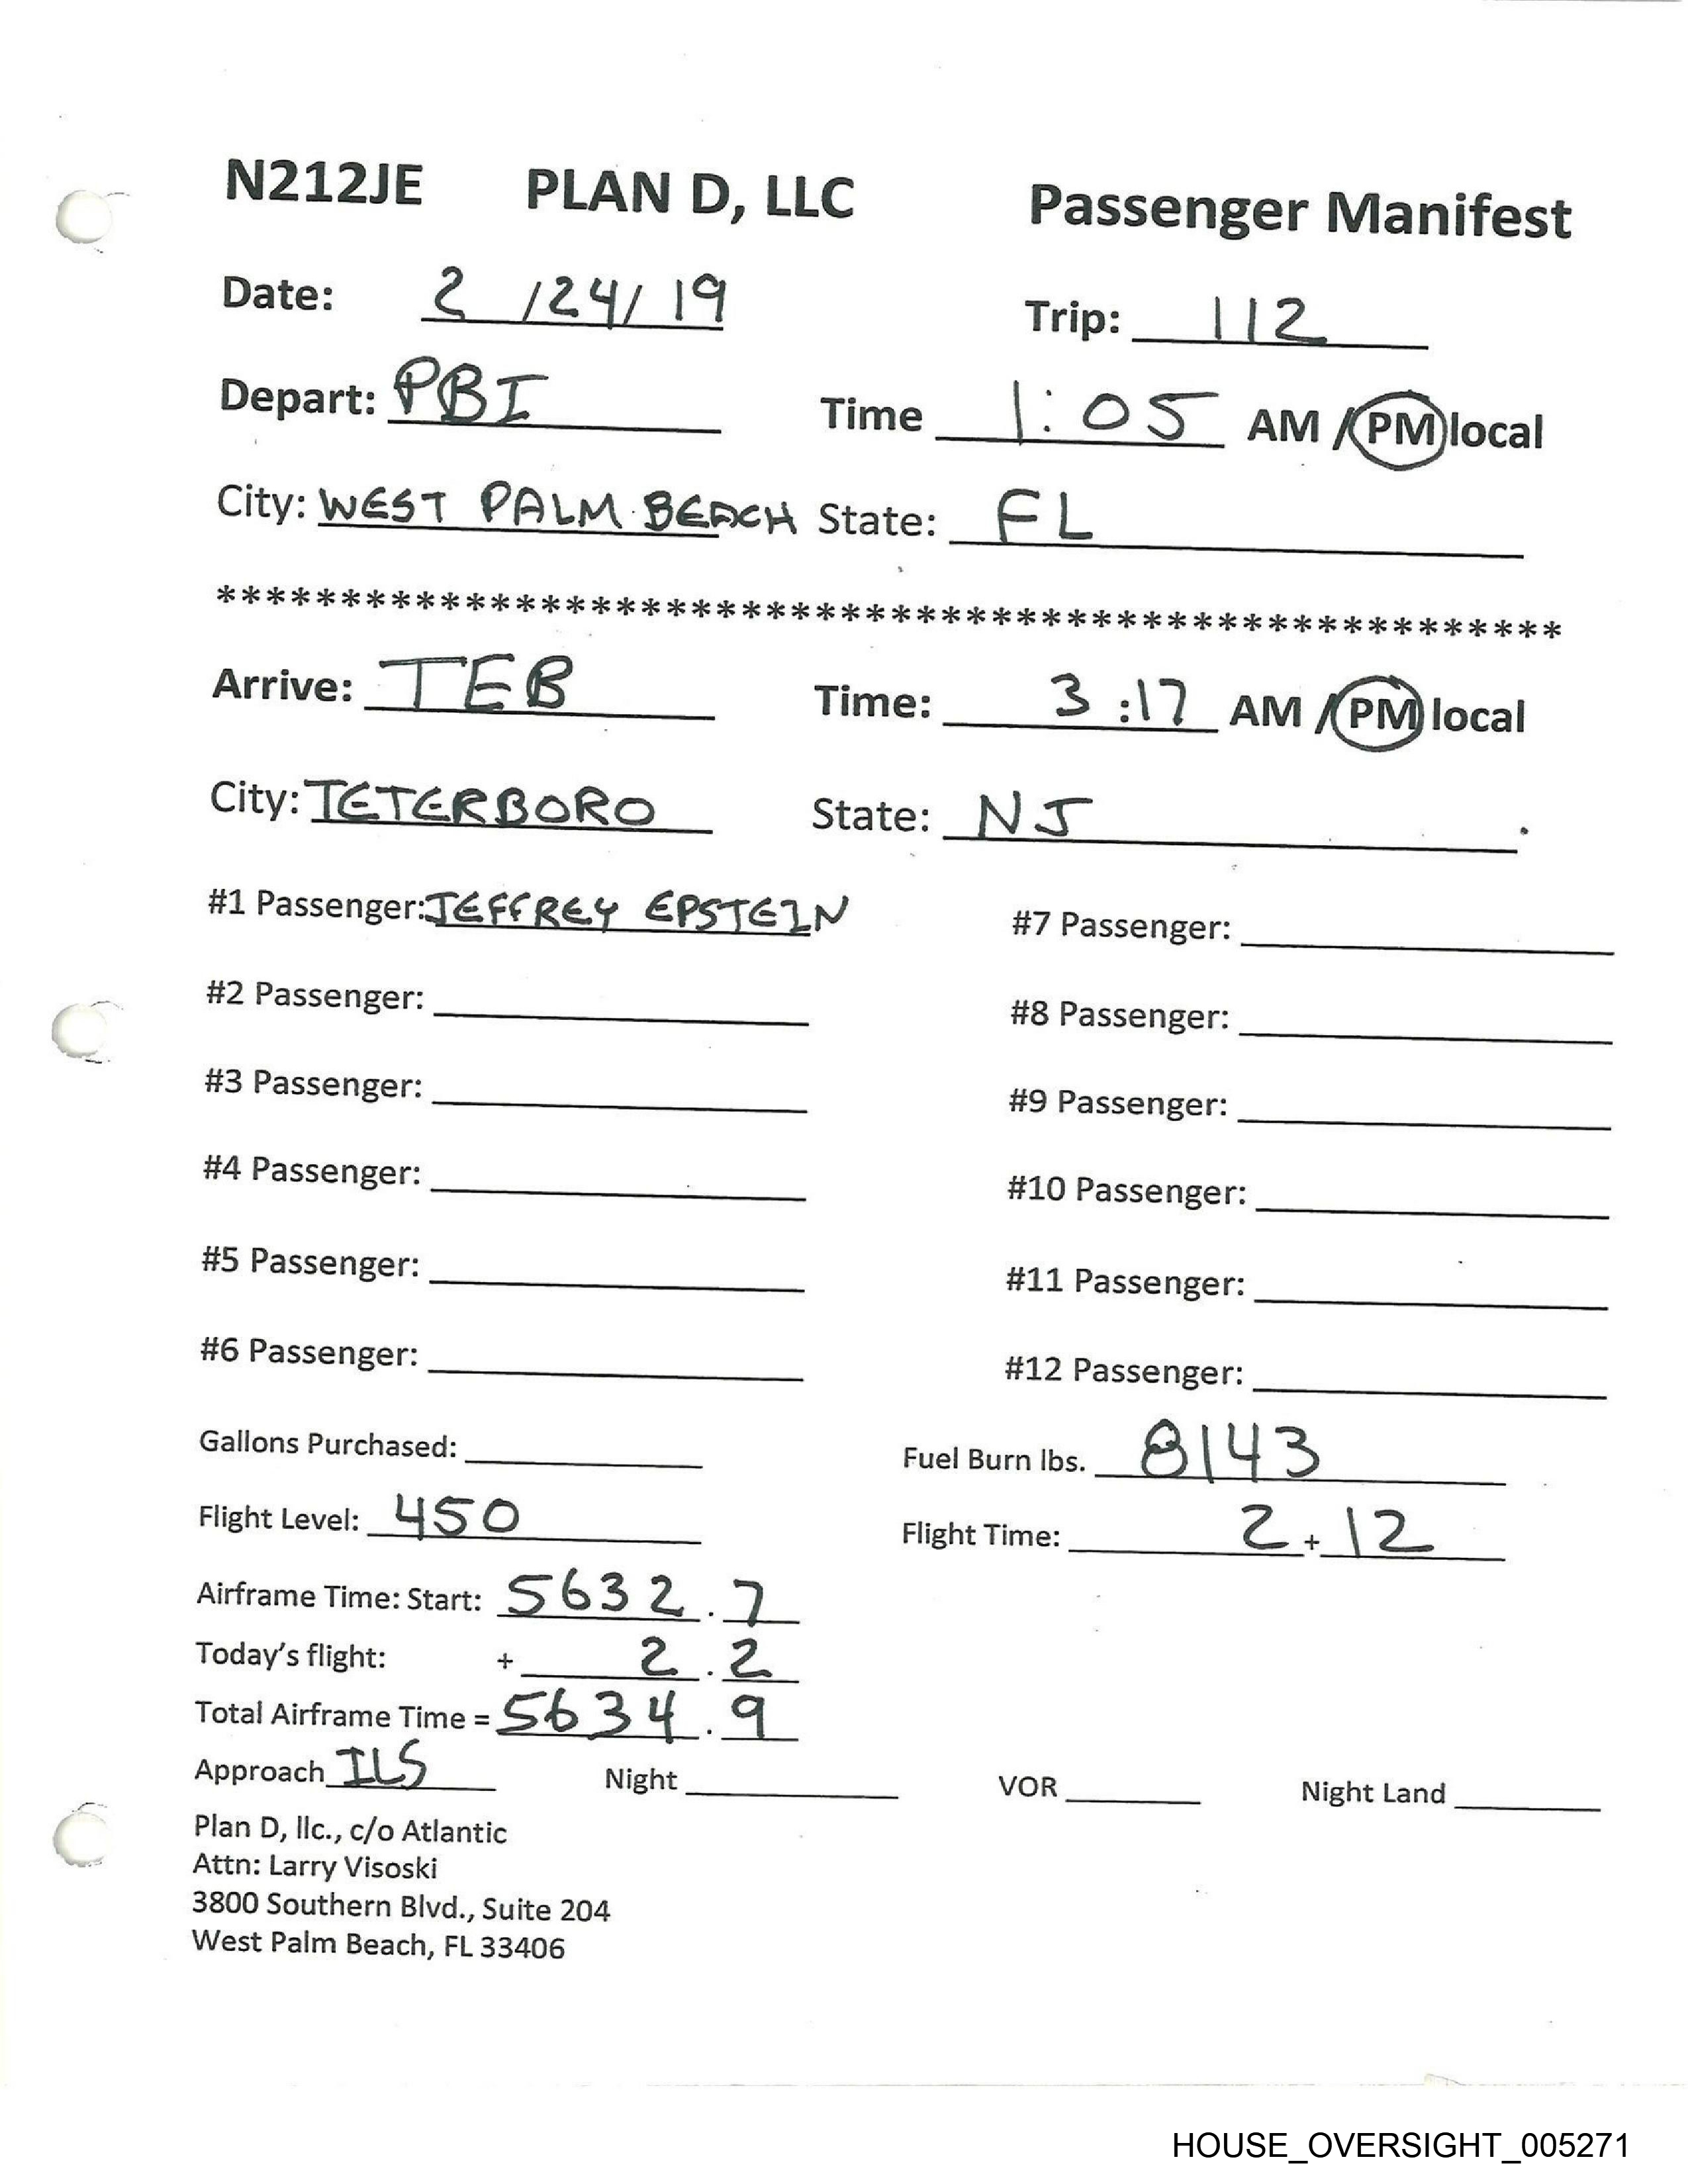 N212JE PLAN D, LLC Passenger Manifest
Date: 2 /24/ 19 Trip: 112
Depart: PBI Time 1:05 AM / PM local
City: WEST PALM BEACH State: FL
*******************************************************
Arrive: TEB Time: 3 :17 AM / PM local
City: TETERBORO State: NJ
#1 Passenger: JEFFREY EPSTEIN #7 Passenger:
#2 Passenger: #8 Passenger:
#3 Passenger: #9 Passenger:
#4 Passenger: #10 Passenger:
#5 Passenger: #11 Passenger:
#6 Passenger: #12 Passenger:
Gallons Purchased: Fuel Burn lbs. 8143
Flight Level: 450 Flight Time: 2 + 12
Airframe Time: Start: 5632 . 7
Today's flight: + 2 . 2
Total Airframe Time = 5634 . 9
Approach ILS Night VOR Night Land
Plan D, llc., c/o Atlantic
Attn: Larry Visoski
3800 Southern Blvd., Suite 204
West Palm Beach, FL 33406
HOUSE_OVERSIGHT_005271